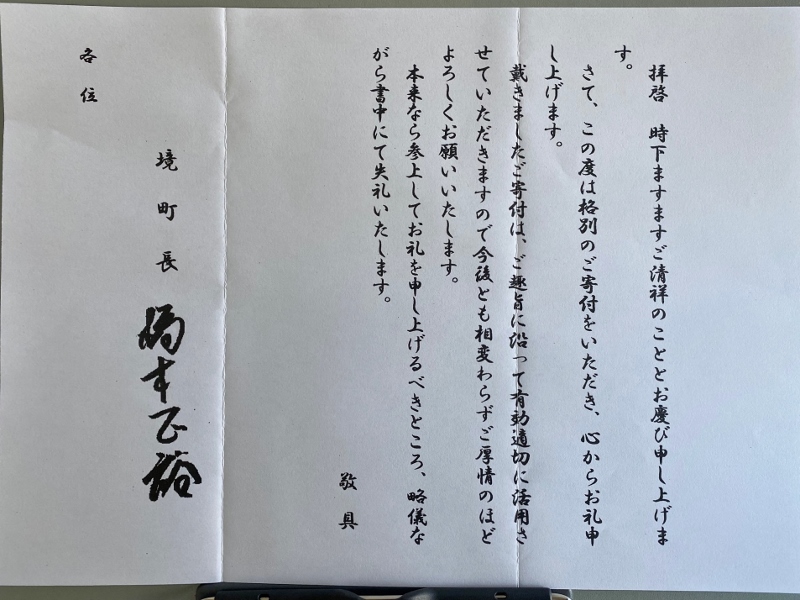 拝啓　時下ますますご清祥のこととお慶び申し上げま
す。
さて、この度は格別のご寄付をいただき、心からお礼申
し上げます。
戴きましたご寄付は、ご趣旨に沿って有効適切に活用さ
せていただきますので今後とも相変わらずご厚情のほど
よろしくお願いいたします。
本来なら参上してお礼を申し上げるべきところ、略儀な
がら書中にて失礼いたします。
敬具
境町長　橋本正裕
各位